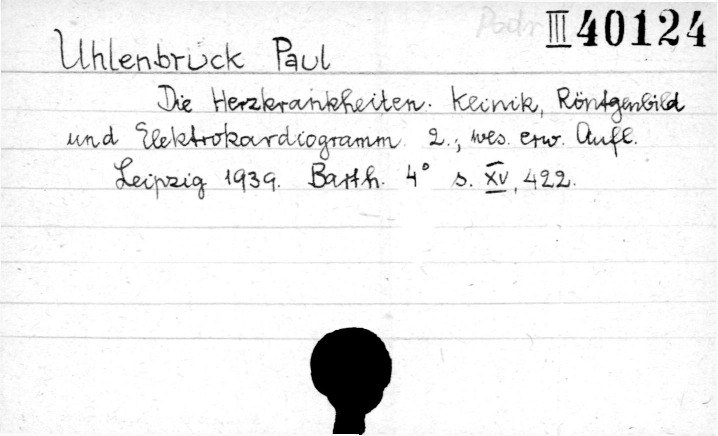 Podr III 40124
Uhlenbruck Paul
Die Herzkrankheiten. Klinik, Röntgenbild
und Elektrokardiogramm 2., wes. erw. Aufl.
Leipzig 1939. Barth. 4° s. XV, 422.